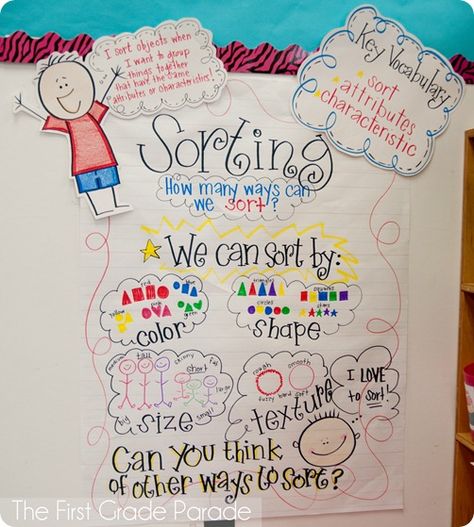 I sort objects when
I want to group
things together
that have the same
attributes or characteristics!
Key Vocabulary
sort
attributes
characteristic
Sorting
How many ways can
we sort?
We can sort by:
red
blue
yellow
pink
green
color
triangles
squares
circles
stars
shape
medium
tall
skinny
short
fat
large
big
small
size
rough
smooth
fuzzy hard soft
texture
I LOVE
to sort!
Can you think
of other ways to sort?
The First Grade Parade